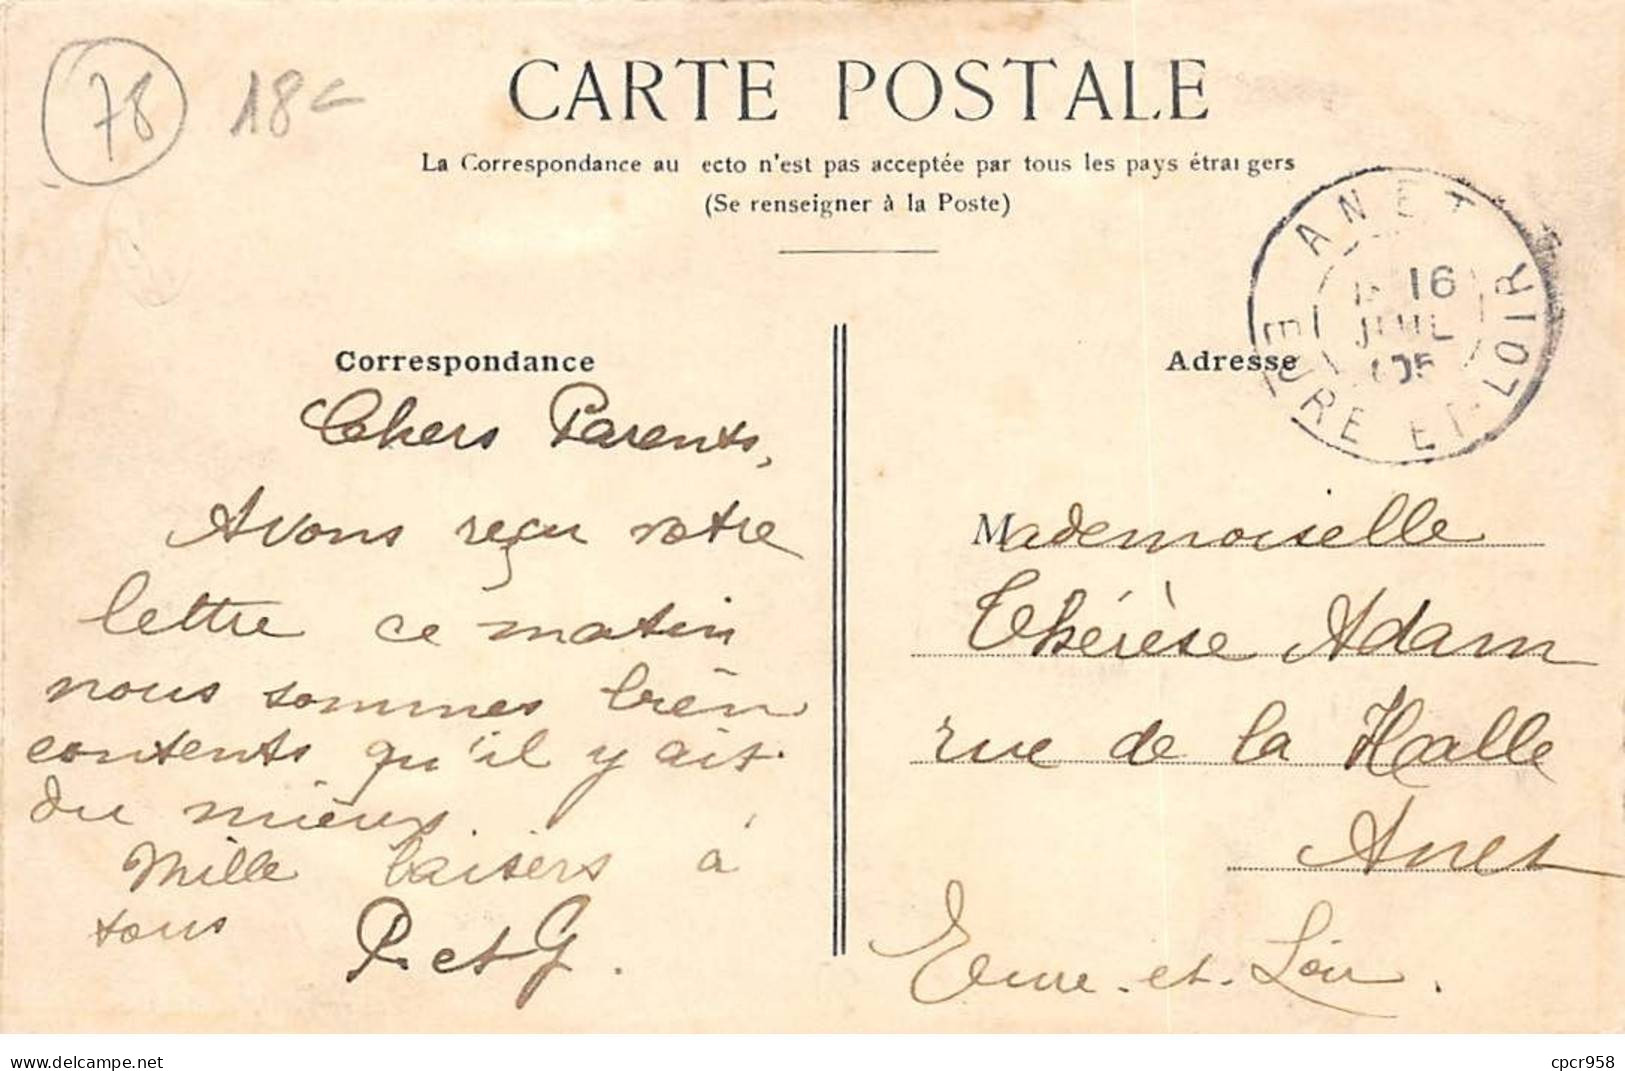 78 18€
CARTE POSTALE
La Correspondance au ecto n'est pas acceptée par tous les pays étrangers
(Se renseigner à la Poste)
ANET
16
JUIL
05
EURE ET-LOIR
Correspondance
Chers Parents,
Avons reçu votre
lettre ce matin
nous sommes bien
contents qu'il y ait
du mieux.
Mille baisers à
tous
P. et G.
Adresse
Mademoiselle
Thérèse Adam
rue de la Halle
Anet
Eure-et-Loir.
www.delcampe.net
cpcr958